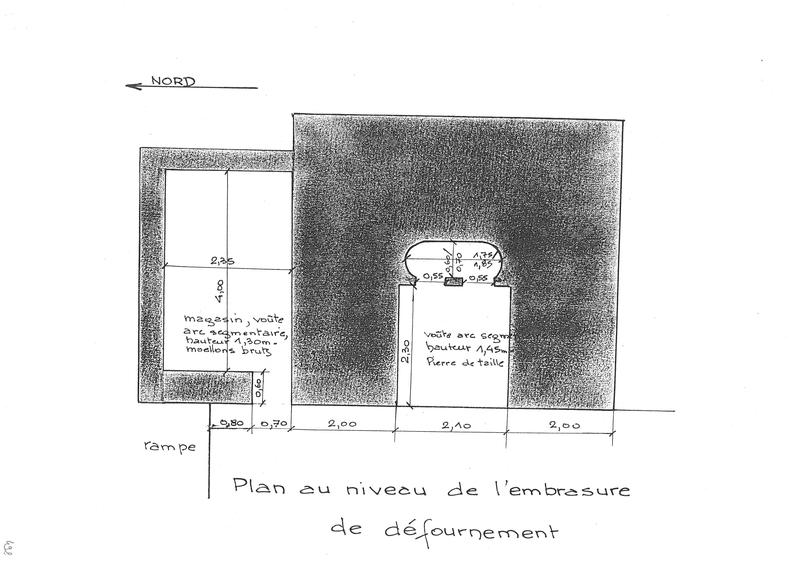 NORD
2,35
4,00
magasin, voûte
arc segmentaire,
hauteur 1,30m.
moellons bruts
0,60/
0,70
1,75/
1,85
0,55
0,55
voûte arc segm
hauteur 1,45m
Pierre de taille
2,30
0,60
0,80
0,70
2,00
2,10
2,00
rampe
Plan au niveau de l'embrasure
de défournement